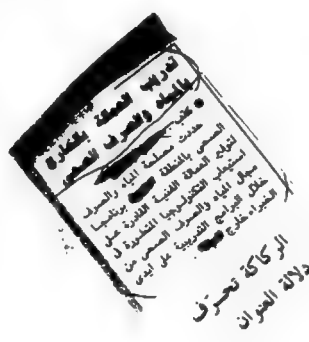 تدريب العمالة بالعمارة
بالمياه والصرف الصحى
كتب
حددت مصلحة المياه والصرف
الصحى بالمنطقة برنامجها
لتواجد العمالة الفنية القادرة على
استيعاب التكنولوجيا المتطورة فى
مجال المياه والصرف الصحى من
خلال البرامج التدريبية على ايدى
الخبراء خارج
الركاكة تحرّف
دلالة العنوان